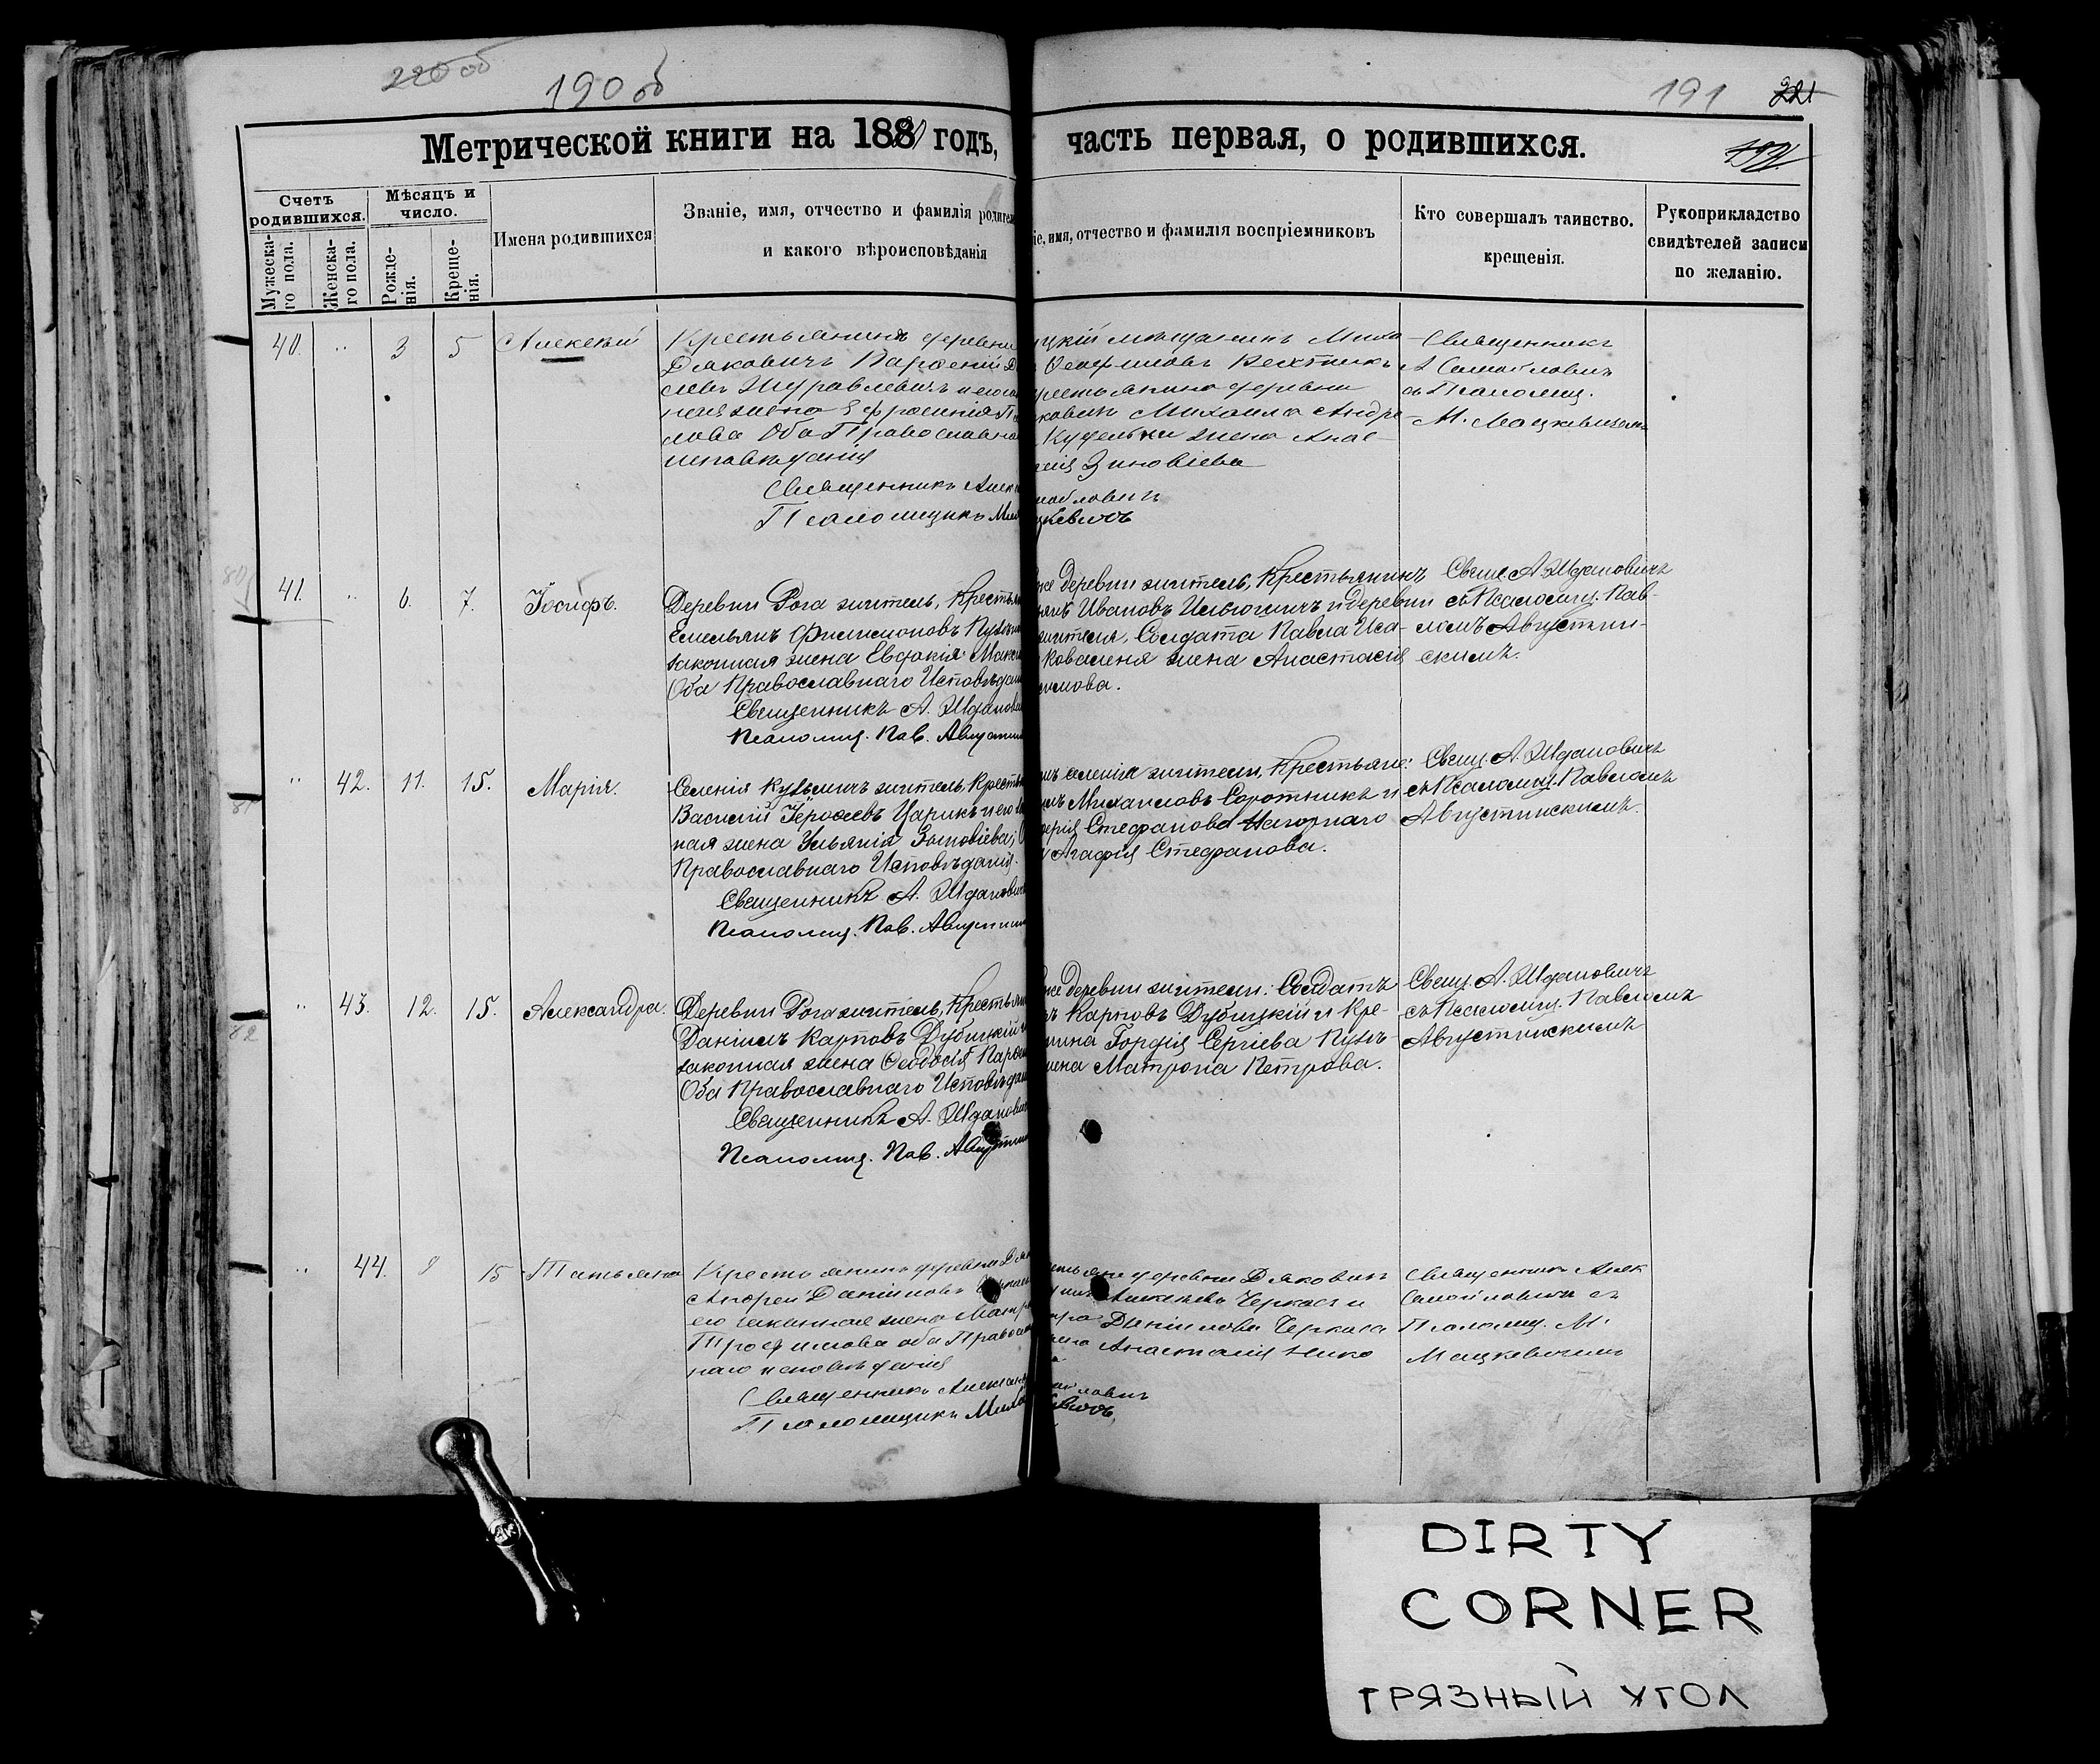 220 об
190 об
191 221
Метрической книги на 188 годъ, часть первая, о родившихся.
Счетъ родившихся.
Мѣсяцъ и число.
Мужеска-го пола.
Женска-го пола.
Рожде-нія.
Креще-нія.
Имена родившихся
Званіе, имя, отчество и фамилія родител
и какого вѣроисповѣданія
іе, имя, отчество и фамилія воспріемниковъ
Кто совершалъ таинство.
крещенія.
Рукоприкладство
свидѣтелей записи
по желанію.
40. " 3 5 Алексѣй
Крестьянинъ деревни
Дяковичъ Парѳеній
Журавлевичъ и его
жена Ефросинія
лова Оба Православна
исповѣданія
Священникъ Алек
Псаломщикъ Ми
цкій мѣщанинъ Миха
крестьянина деревни
ковичъ Михаила Андре
жена Анас-
сія Зиновіева
мойловичъ
цкевичъ
Священникъ
А Самойловичъ
съ Псаломщ.
М. Мацкевичемъ
80
41. " 6. 7. Іосифъ.
Деревни Рога житель, Крестья
Емельянъ Филимоновъ
законная жена Евдокія Макси
Оба Православнаго Исповѣдан
Священникъ А. Жданови
Псаломщ. Пав. Августин
же деревни житель, Крестьянинъ
Ивановъ и деревни
жителя, Солдата Павла Иса-
Коваленя жена Анастасія
симова.
Свящ. А. Ждановичъ
съ Псаломщ. Пав-
ломъ Августин-
скимъ.
81
" 42. 11. 15. Марія.
Селенія Кузьмичъ житель, Кресть
Василій Іероѳеевъ Царикъ и его
ная жена Ульянія Зиновіева,
Православнаго Исповѣданія.
Священникъ А. Жданович
Псаломщ. Пав. Августин
селенія жители, Крестьяне:
Михаиловъ Соротникъ и
Стефанова Нагорнаго
Агафія Стефанова.
Свящ. А. Ждановичъ
съ Псаломщ. Павломъ
Августинскимъ.
82
" 43. 12. 15. Александра.
Деревни Рога житель, Крестьян
Даніилъ Карповъ Дубицкій и
законная жена Ѳеодосія Парѳе
Оба Православнаго Исповѣдан
Священникъ А. Жданович
Псаломщ. Пав. Августин
же деревни жители: Солдатъ
Карповъ Дубицкій и Кре-
нина Гордія Сергіева
жена Матрона Петрова.
Свящ. А. Ждановичъ
съ Псаломщ. Павломъ
Августинскимъ
" 44. 8 15 Татьяна
Крестьянинъ деревни Дяк
Андрей Даніиловъ
его законная жена Матр
Трофимова оба Правосл
наго исповѣданія
Священникъ Алекса
Псаломщикъ Миха
деревни Дяковичъ
Алексѣевъ Черкасъ и
Даніилова Черкаса
жена Анастасія Нико
ловичъ
кевичъ
Священникъ Алек
Самойловичъ съ
Псаломщ. М.
Мацкевичемъ
DIRTY
CORNER
ГРЯЗНЫЙ УГОЛ